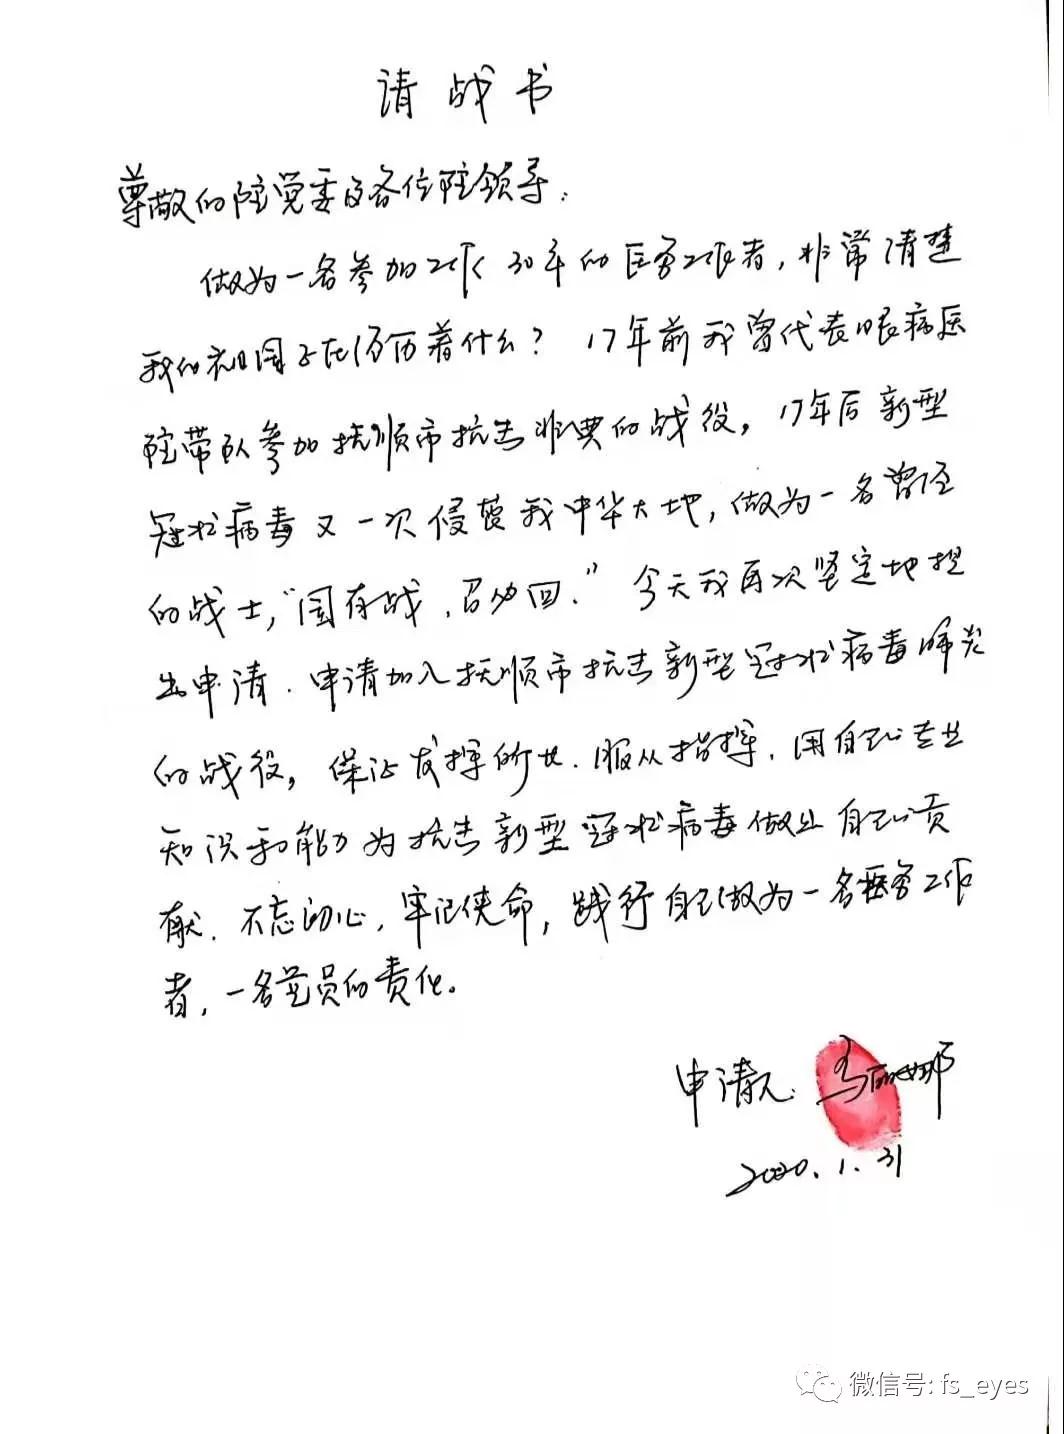 请战书
尊敬的院党委及各位院领导：
做为一名参加工作30年的医务工作者，非常清楚
我的祖国正在经历着什么？17年前我曾代表眼病医
院带队参加抚顺市抗击非典的战役，17年后新型
冠状病毒又一次侵袭我中华大地，做为一名曾经
的战士，“国有战，召必回.”今天我再次坚定地提
出申请.申请加入抚顺市抗击新型冠状病毒肺炎
的战役，保证发挥所长.服从指挥.用自己专业
知识和能力为抗击新型冠状病毒做出自己贡
献.不忘初心，牢记使命，践行自己做为一名医务工作
者，一名党员的责任。
申请人：马丽娜
2020.1.31
微信号: fs_eyes